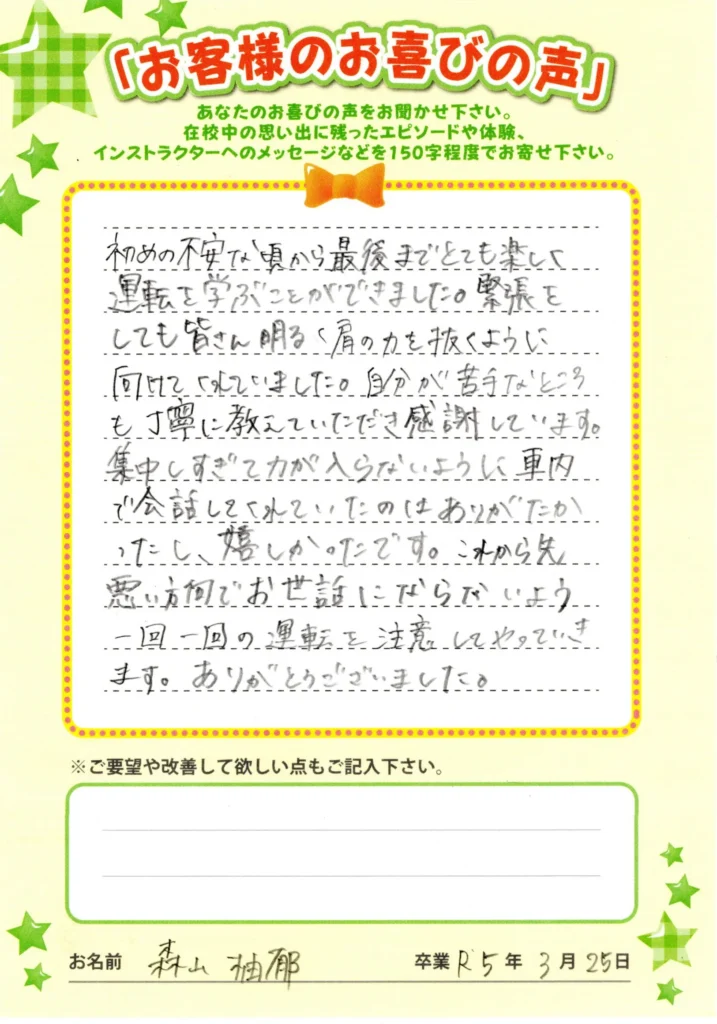 「お客様のお喜びの声」
あなたのお喜びの声をお聞かせ下さい。
在校中の思い出に残ったエピソードや体験、
インストラクターへのメッセージなどを150字程度でお寄せ下さい。
初めの不安な頃から最後までとても楽しく
運転を学ぶことができました。緊張を
しても皆さん明るく肩の力を抜くように
向けてくれていました。自分が苦手なところ
も丁寧に教えていただき感謝しています。
集中しすぎて力が入らないように車内
で会話してくれていたのはありがたか
ったし、嬉しかったです。これから先
悪い方向でお世話にならないよう
一回一回の運転を注意してやっていき
ます。ありがとうございました。
※ご要望や改善して欲しい点もご記入下さい。
お名前 森山 柚郁 卒業 R5年3月25日